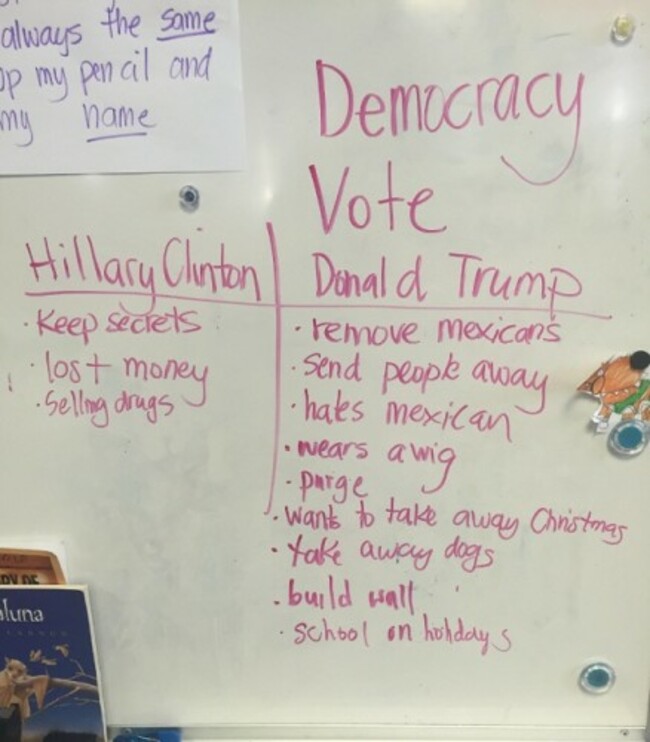 always the same
up my pencil and
my name
Democracy
Vote
Hillary Clinton
Donald Trump
· Keep secrets
· lost money
· Selling drugs
· remove mexicans
· Send people away
· hates mexican
· wears a wig
· purge
· wants to take away Christmas
· take away dogs
· build wall
· school on holidays
RY OF
luna